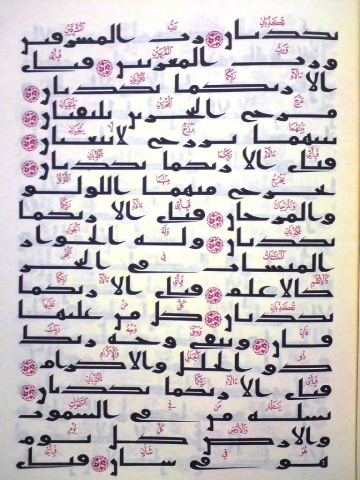 تكذبان رب المشرقين
ورب المغربين فبأي
ءالاء ربكما تكذبان
مرج البحرين يلتقيان
بينهما برزخ لا يبغيان
فبأي ءالاء ربكما تكذبان
يخرج منهما اللؤلؤ
والمرجان فبأي ءالاء ربكما
تكذبان وله الجوار
المنشئات في البحر
كالأعلم فبأي ءالاء ربكما
تكذبان كل من عليها
فان ويبقى وجه ربك
ذو الجلل والاكرام
فبأي ءالاء ربكما تكذبان
يسئله من في السموت
والأرض كل يوم
هو في شأن فبأي